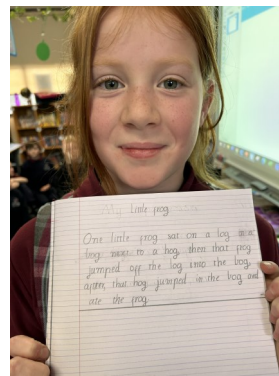 My Little frog
One little frog sat on a log
to a hog, then that frog
jumped off the log into the bog,
after, that hog jumped in the bog and
ate the frog